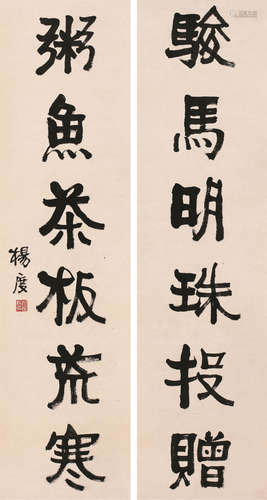 駿馬明珠投贈
粥魚茶板荒寒
楊度